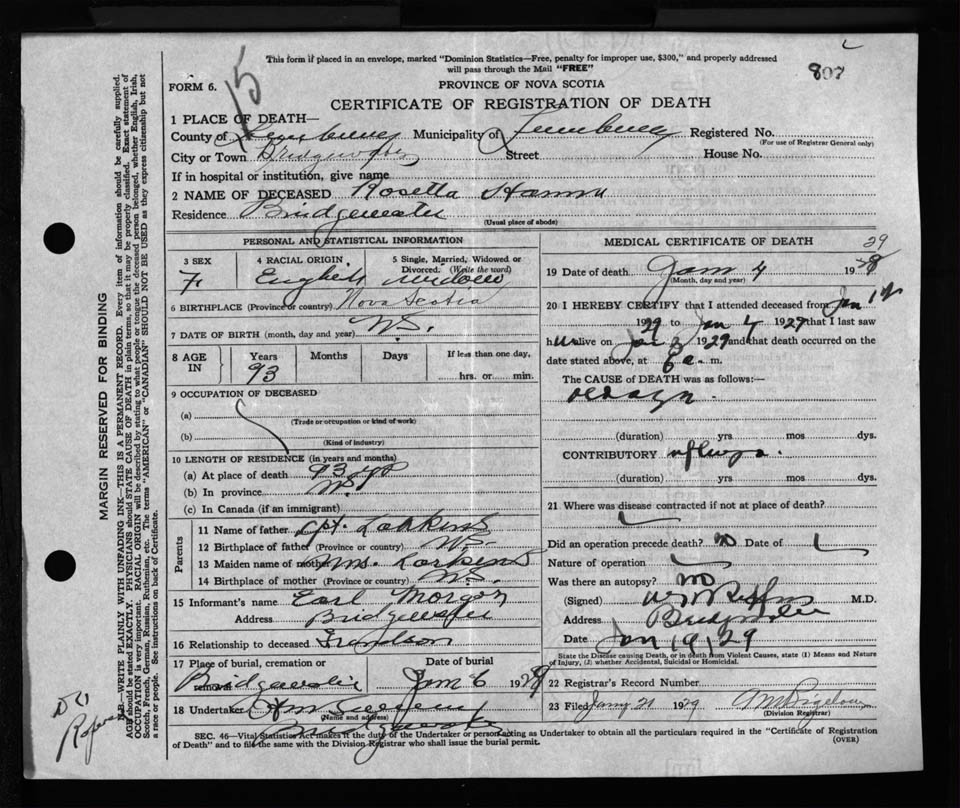 This form if placed in an envelope, marked "Dominion Statistics—Free, penalty for improper use, $300," and properly addressed
will pass through the Mail "FREE"
15
807
FORM 6.
PROVINCE OF NOVA SCOTIA
CERTIFICATE OF REGISTRATION OF DEATH
1 PLACE OF DEATH—
County of Lunenburg Municipality of Lunenburg Registered No.
(For use of Registrar General only)
City or Town Bridgewater Street House No.
If in hospital or institution, give name
2 NAME OF DECEASED Rosella Hamm
Residence Bridgewater
(Usual place of abode)
PERSONAL AND STATISTICAL INFORMATION
3 SEX 4 RACIAL ORIGIN 5 Single, Married, Widowed or Divorced. (Write the word)
F. English widow
6 BIRTHPLACE (Province or country) Nova Scotia
7 DATE OF BIRTH (month, day and year) NS.
8 AGE IN Years Months Days If less than one day,
93 hrs. or min.
9 OCCUPATION OF DECEASED
(a)
(Trade or occupation or kind of work)
(b)
(Kind of industry)
10 LENGTH OF RESIDENCE (in years and months)
(a) At place of death 93 yrs
(b) In province
(c) In Canada (if an immigrant)
Parents
11 Name of father Larkins
12 Birthplace of father (Province or country) NS
13 Maiden name of mother Mrs. Larkins
14 Birthplace of mother (Province or country) NS.
15 Informant's name Earl Morgan
Address Bridgewater
16 Relationship to deceased Grandson
17 Place of burial, cremation or removal Date of burial
Bridgewater Jan 6 1929
18 Undertaker
(Name and address)
Bridgewater
MEDICAL CERTIFICATE OF DEATH
29
19 Date of death Jan 4 19
(Month, day and year)
20 I HEREBY CERTIFY that I attended deceased from Jan 1st
1929 to Jan 4 1929 that I last saw
her alive on Jan 3 1929 and that death occurred on the
date stated above, at a. m.
The CAUSE of DEATH was as follows:—
old age.
(duration) yrs mos dys.
CONTRIBUTORY
(duration) yrs mos dys.
21 Where was disease contracted if not at place of death?
Did an operation precede death? no Date of
Nature of operation
Was there an autopsy? no
(Signed) M.D.
Address Bridgewater
Date Jan 19, 29
State the Disease causing Death, or in death from Violent Causes, state (1) Means and Nature
of Injury, (2) whether Accidental, Suicidal or Homicidal.
22 Registrar's Record Number
23 Filed Jany 21 1929
(Division Registrar)
SEC. 46—Vital Statistics Act makes it the duty of the Undertaker or person acting as Undertaker to obtain all the particulars required in the "Certificate of Registration
of Death" and to file the same with the Division Registrar who shall issue the burial permit.
(OVER)
MARGIN RESERVED FOR BINDING
N.B.—WRITE PLAINLY WITH UNFADING INK—THIS IS A PERMANENT RECORD. Every item of information should be carefully supplied.
AGE should be stated EXACTLY. PHYSICIANS should STATE CAUSE OF DEATH in plain terms, so that it may be properly classified. Exact statement of
OCCUPATION is very important. RACIAL ORIGIN will be described by stating to what people or tongue the deceased person belonged, whether English, Irish,
Scotch, French, German, Russian, Ruthenian, etc. The terms "AMERICAN" or "CANADIAN" SHOULD NOT BE USED as they express citizenship but not
a race or people. See instructions on back of Certificate.